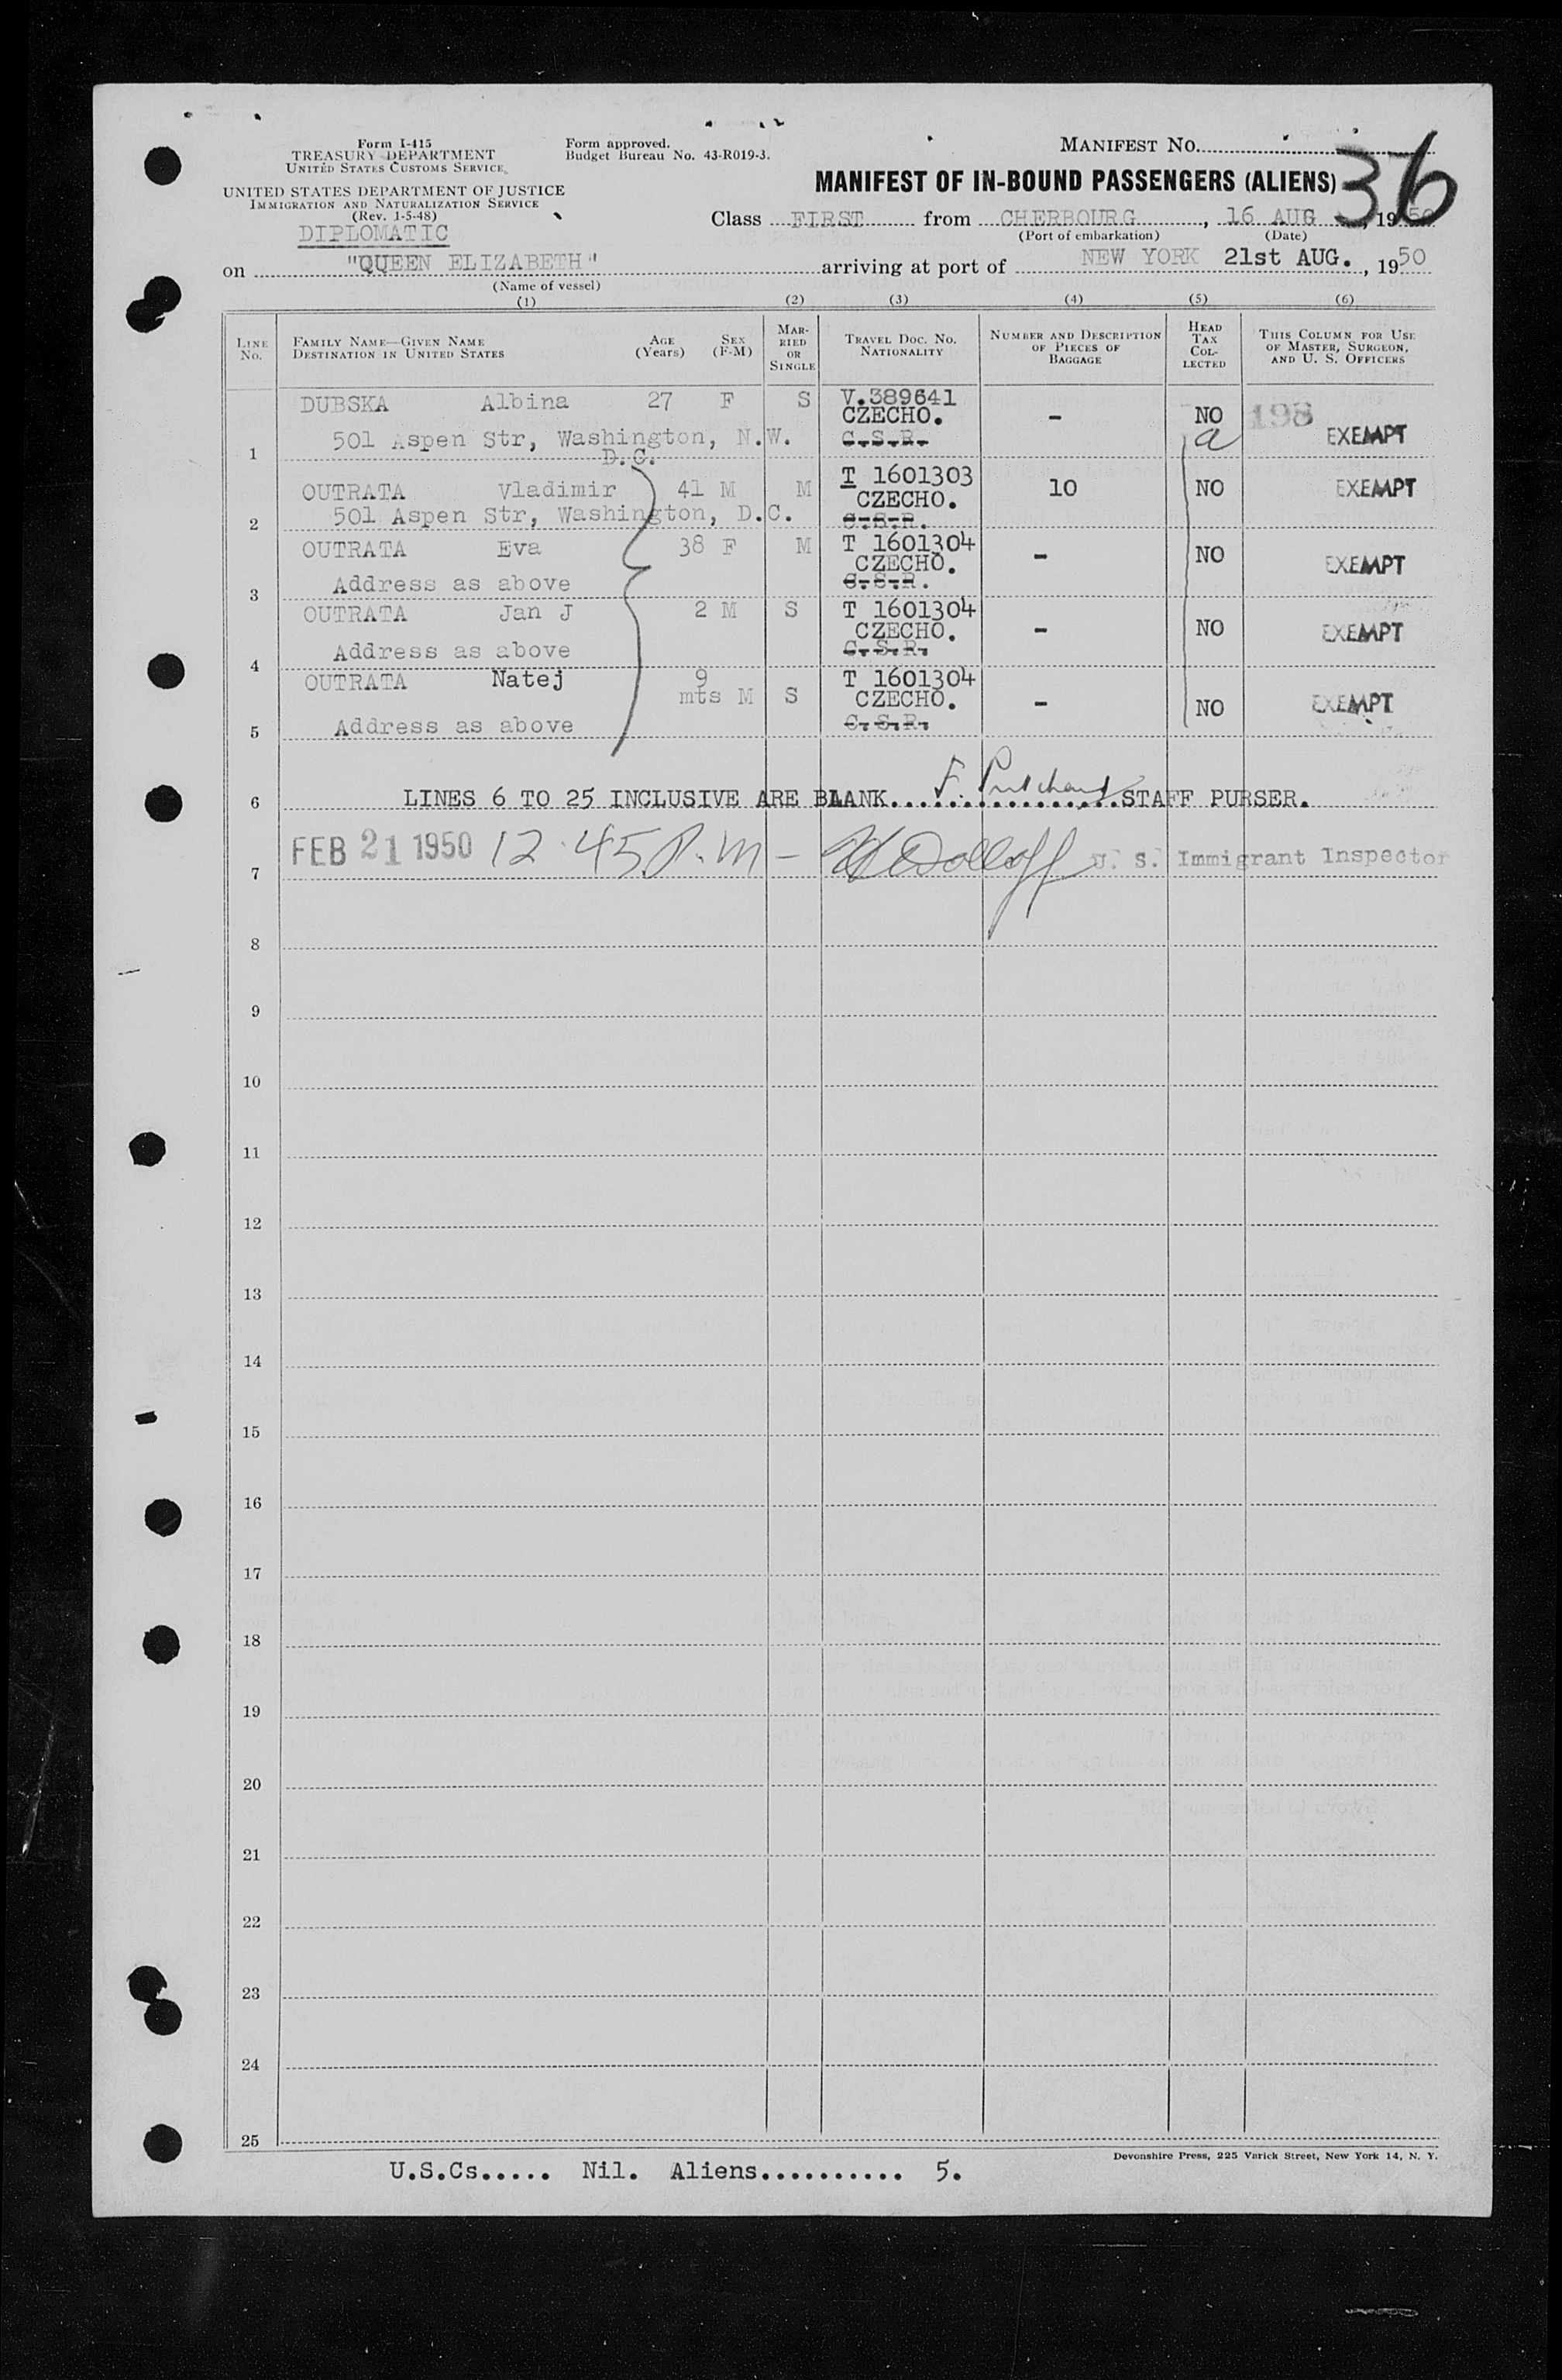 Form I-415
TREASURY DEPARTMENT
UNITED STATES CUSTOMS SERVICE
UNITED STATES DEPARTMENT OF JUSTICE
IMMIGRATION AND NATURALIZATION SERVICE
(Rev. 1-5-48)
DIPLOMATIC
Form approved.
Budget Bureau No. 43-R019-3.
MANIFEST NO.
36
MANIFEST OF IN-BOUND PASSENGERS (ALIENS)
Class FIRST from CHERBOURG, 16 AUG, 1950
(Port of embarkation) (Date)
on "QUEEN ELIZABETH" arriving at port of NEW YORK 21st AUG., 1950
(Name of vessel)
(1) (2) (3) (4) (5) (6)
LINE NO.
FAMILY NAME—GIVEN NAME
DESTINATION IN UNITED STATES
AGE (Years)
SEX (F-M)
MARRIED OR SINGLE
TRAVEL DOC. NO.
NATIONALITY
NUMBER AND DESCRIPTION OF PIECES OF BAGGAGE
HEAD TAX COLLECTED
THIS COLUMN FOR USE OF MASTER, SURGEON, AND U. S. OFFICERS
DUBSKA Albina 27 F S V.389641 CZECHO. C.S.R. - NO a 198 EXEMPT
1 501 Aspen Str, Washington, N.W. D.C.
OUTRATA Vladimir 41 M M T 1601303 CZECHO. C.S.R. 10 NO EXEMPT
2 501 Aspen Str, Washington, D.C.
OUTRATA Eva 38 F M T 1601304 CZECHO. C.S.R. - NO EXEMPT
3 Address as above
OUTRATA Jan J 2 M S T 1601304 CZECHO. C.S.R. - NO EXEMPT
4 Address as above
OUTRATA Natej 9 mts M S T 1601304 CZECHO. C.S.R. - NO EXEMPT
5 Address as above
6 LINES 6 TO 25 INCLUSIVE ARE BLANK. F. Pritchard STAFF PURSER.
7 FEB 21 1950 12.45 P.m — U. S. Immigrant Inspector
8
9
10
11
12
13
14
15
16
17
18
19
20
21
22
23
24
25
Devonshire Press, 225 Varick Street, New York 14, N. Y.
U.S.Cs..... Nil. Aliens........... 5.